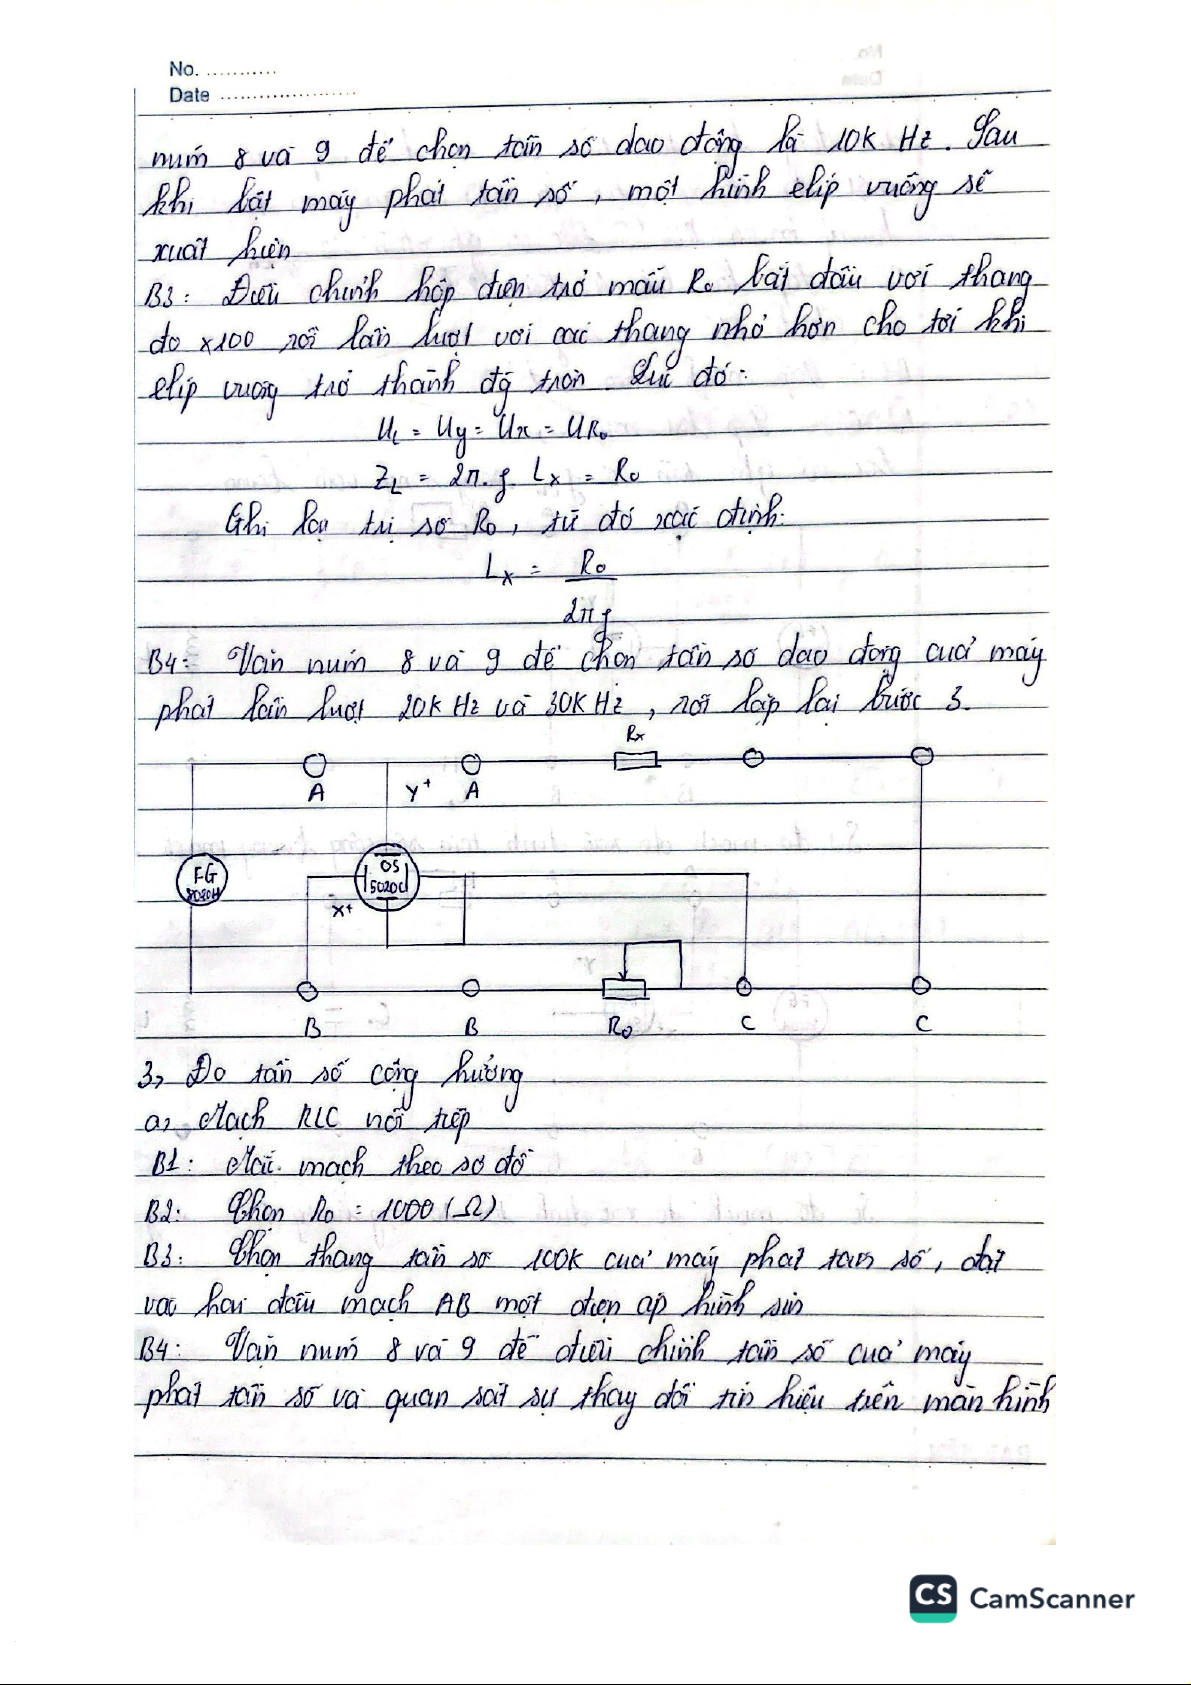 No. ...........
Date .....................
núm 8 và 9 để chọn tần số dao động là 10K Hz. Sau
khi bật máy phát tần số, một hình elip vuông sẽ
xuất hiện
B3: Điều chỉnh hộp điện trở mẫu R₀ bắt đầu với thang
đo x100 rồi lần lượt với các thang nhỏ hơn cho tới khi
elip vuông trở thành đg tròn. Lúc đó:
U_L = Uy = Ux = UR₀
Z_L = 2π.f. Lx = R₀
Ghi lại trị số R₀, từ đó xác định:
Lx = R₀
2πf
B4: Vặn núm 8 và 9 để chọn tần số dao động của máy
phát lần lượt 20K Hz và 30K Hz, rồi lặp lại bước 3.
Rx
A Y+ A
FG OS
8020H 5020C
X+
B B R₀ C C
3, Đo tần số cộng hưởng
a, Mạch RLC nối tiếp
B1: Mắc mạch theo sơ đồ
B2: Chọn R₀ = 1000 (Ω)
B3: Chọn thang tần số 100K của máy phát tần số, đặt
vào hai đầu mạch AB một điện áp hình sin
B4: Vặn núm 8 và 9 để điều chỉnh tần số của máy
phát tần số và quan sát sự thay đổi tín hiệu trên màn hình
CS CamScanner